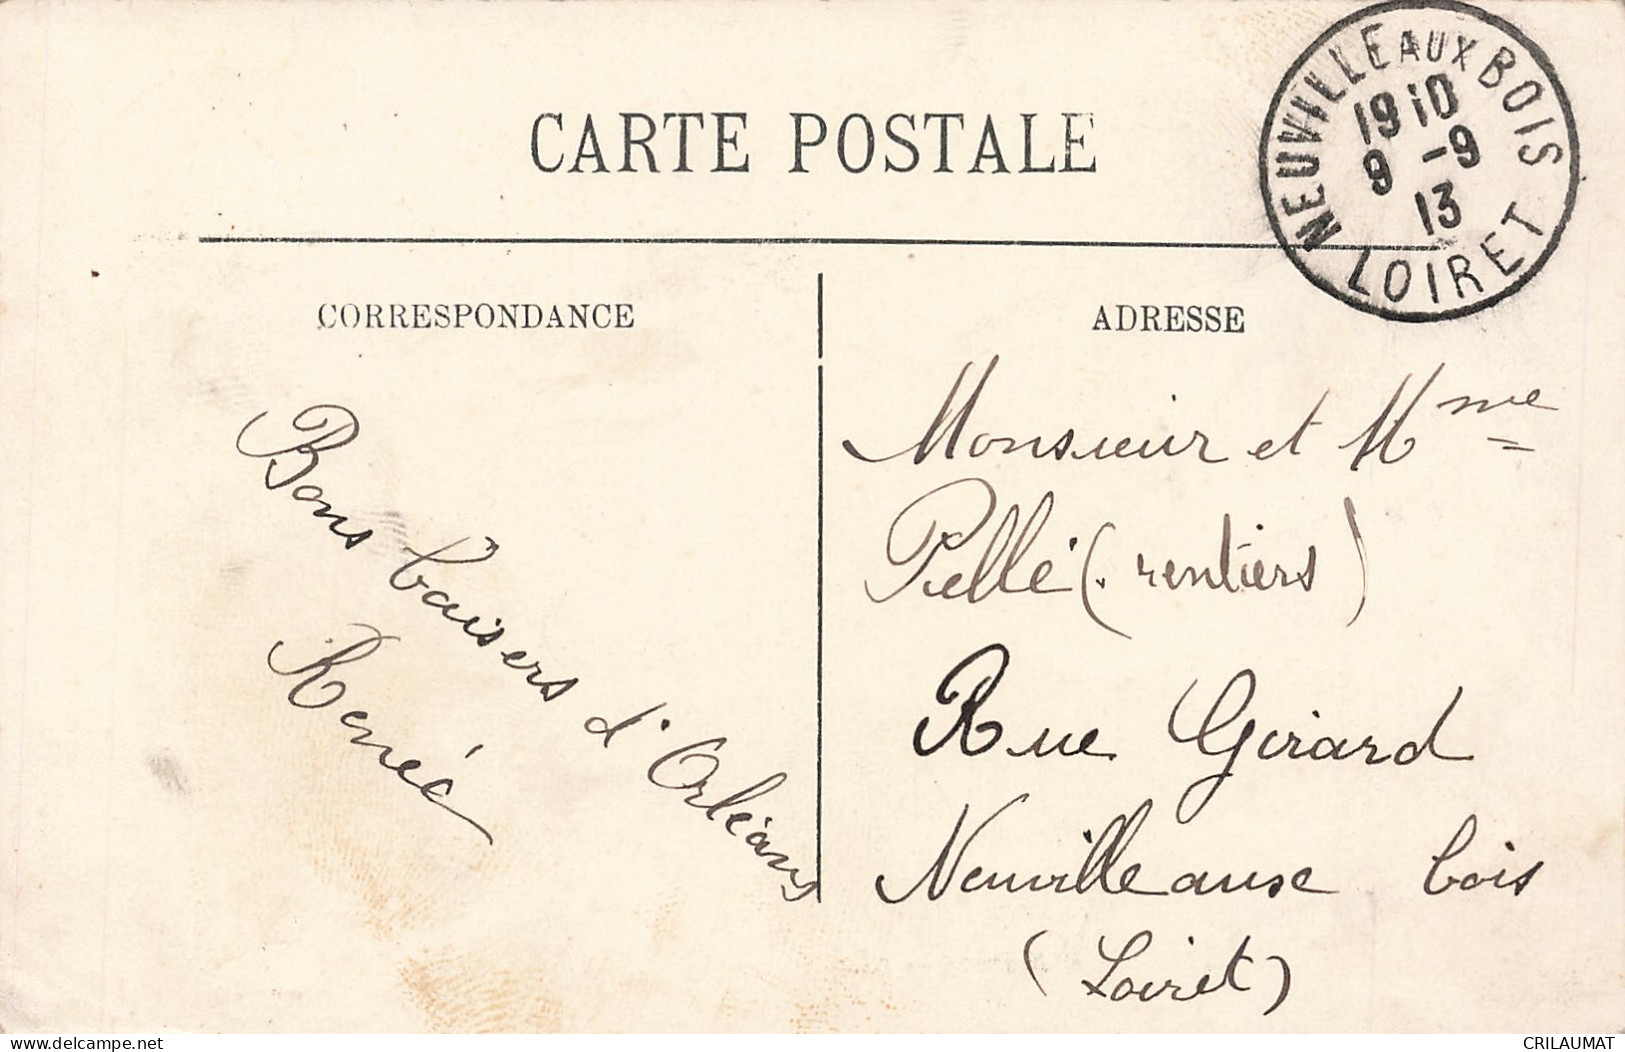 CARTE POSTALE
NEUVILLE AUX BOIS
19 10
9 -9
13
LOIRET
CORRESPONDANCE
ADRESSE
Bons baisers d'Orléans
Renée
Monsieur et Mme
Pellé (rentiers)
Rue Girard
Neuville aux bois
(Loiret)
delcampe.net
CRILAUMAT